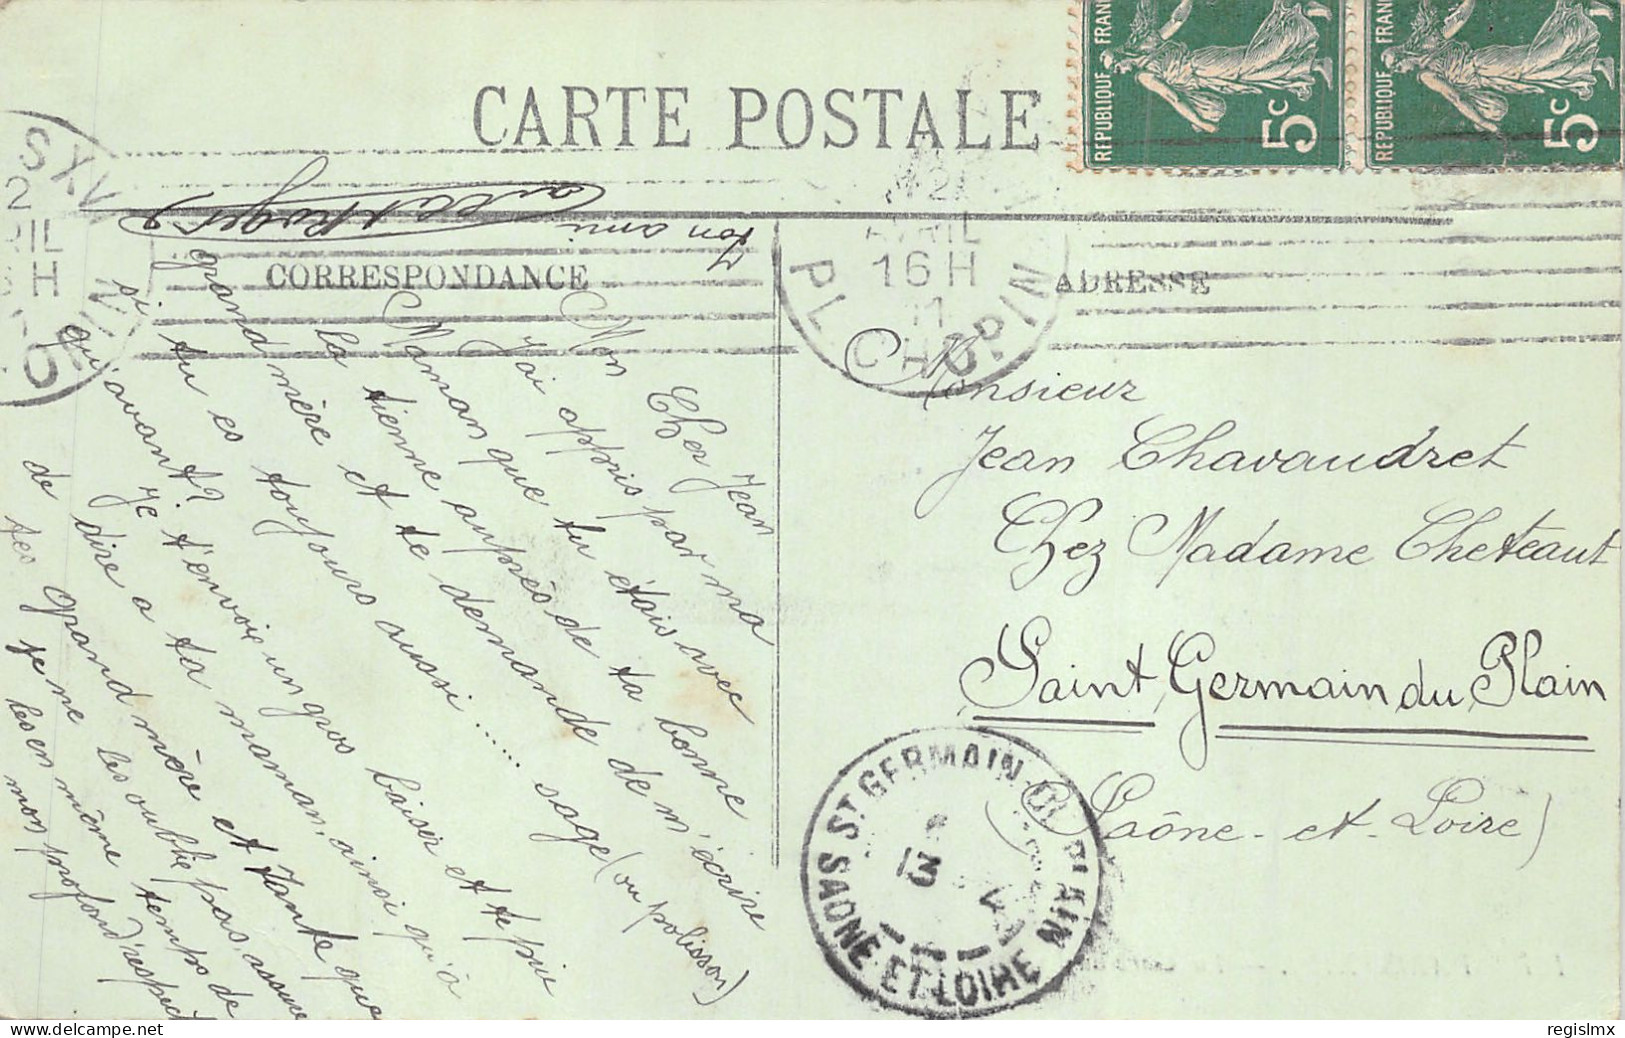 CARTE POSTALE
REPUBLIQUE FRAN
5c
REPUBLIQUE FRA
5c
CORRESPONDANCE
ADRESSE
PL. CHOPIN
AVRIL
16 H
11
Mon Cher Jean
J'ai appris par ma
Maman que tu étais avec
la tienne auprès de ta bonne
grand mère et te demande de m'écrire
si tu es toujours aussi ...... sage (ou polisson)
qu'avant? Je t'envoie un gros baiser et te prie
de dire a ta maman, ainsi qu'à
tes grand mère et tante que
je ne les oublie pas, assure
les en même temps de
mon profond respect
Ton ami
Roger
Monsieur
Jean Chavaudret
Chez Madame Cheteaut
Saint Germain du Plain
(Saône-et-Loire)
ST GERMAIN-DU-PLAIN
13
SAONE-ET-LOIRE
regislmx